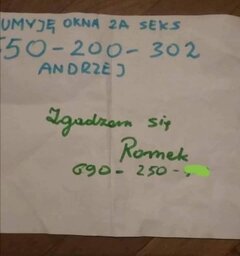 UMYJĘ OKNA ZA SEKS
50-200-302
ANDRZEJ
Zgadzam się
Romek
690-250-